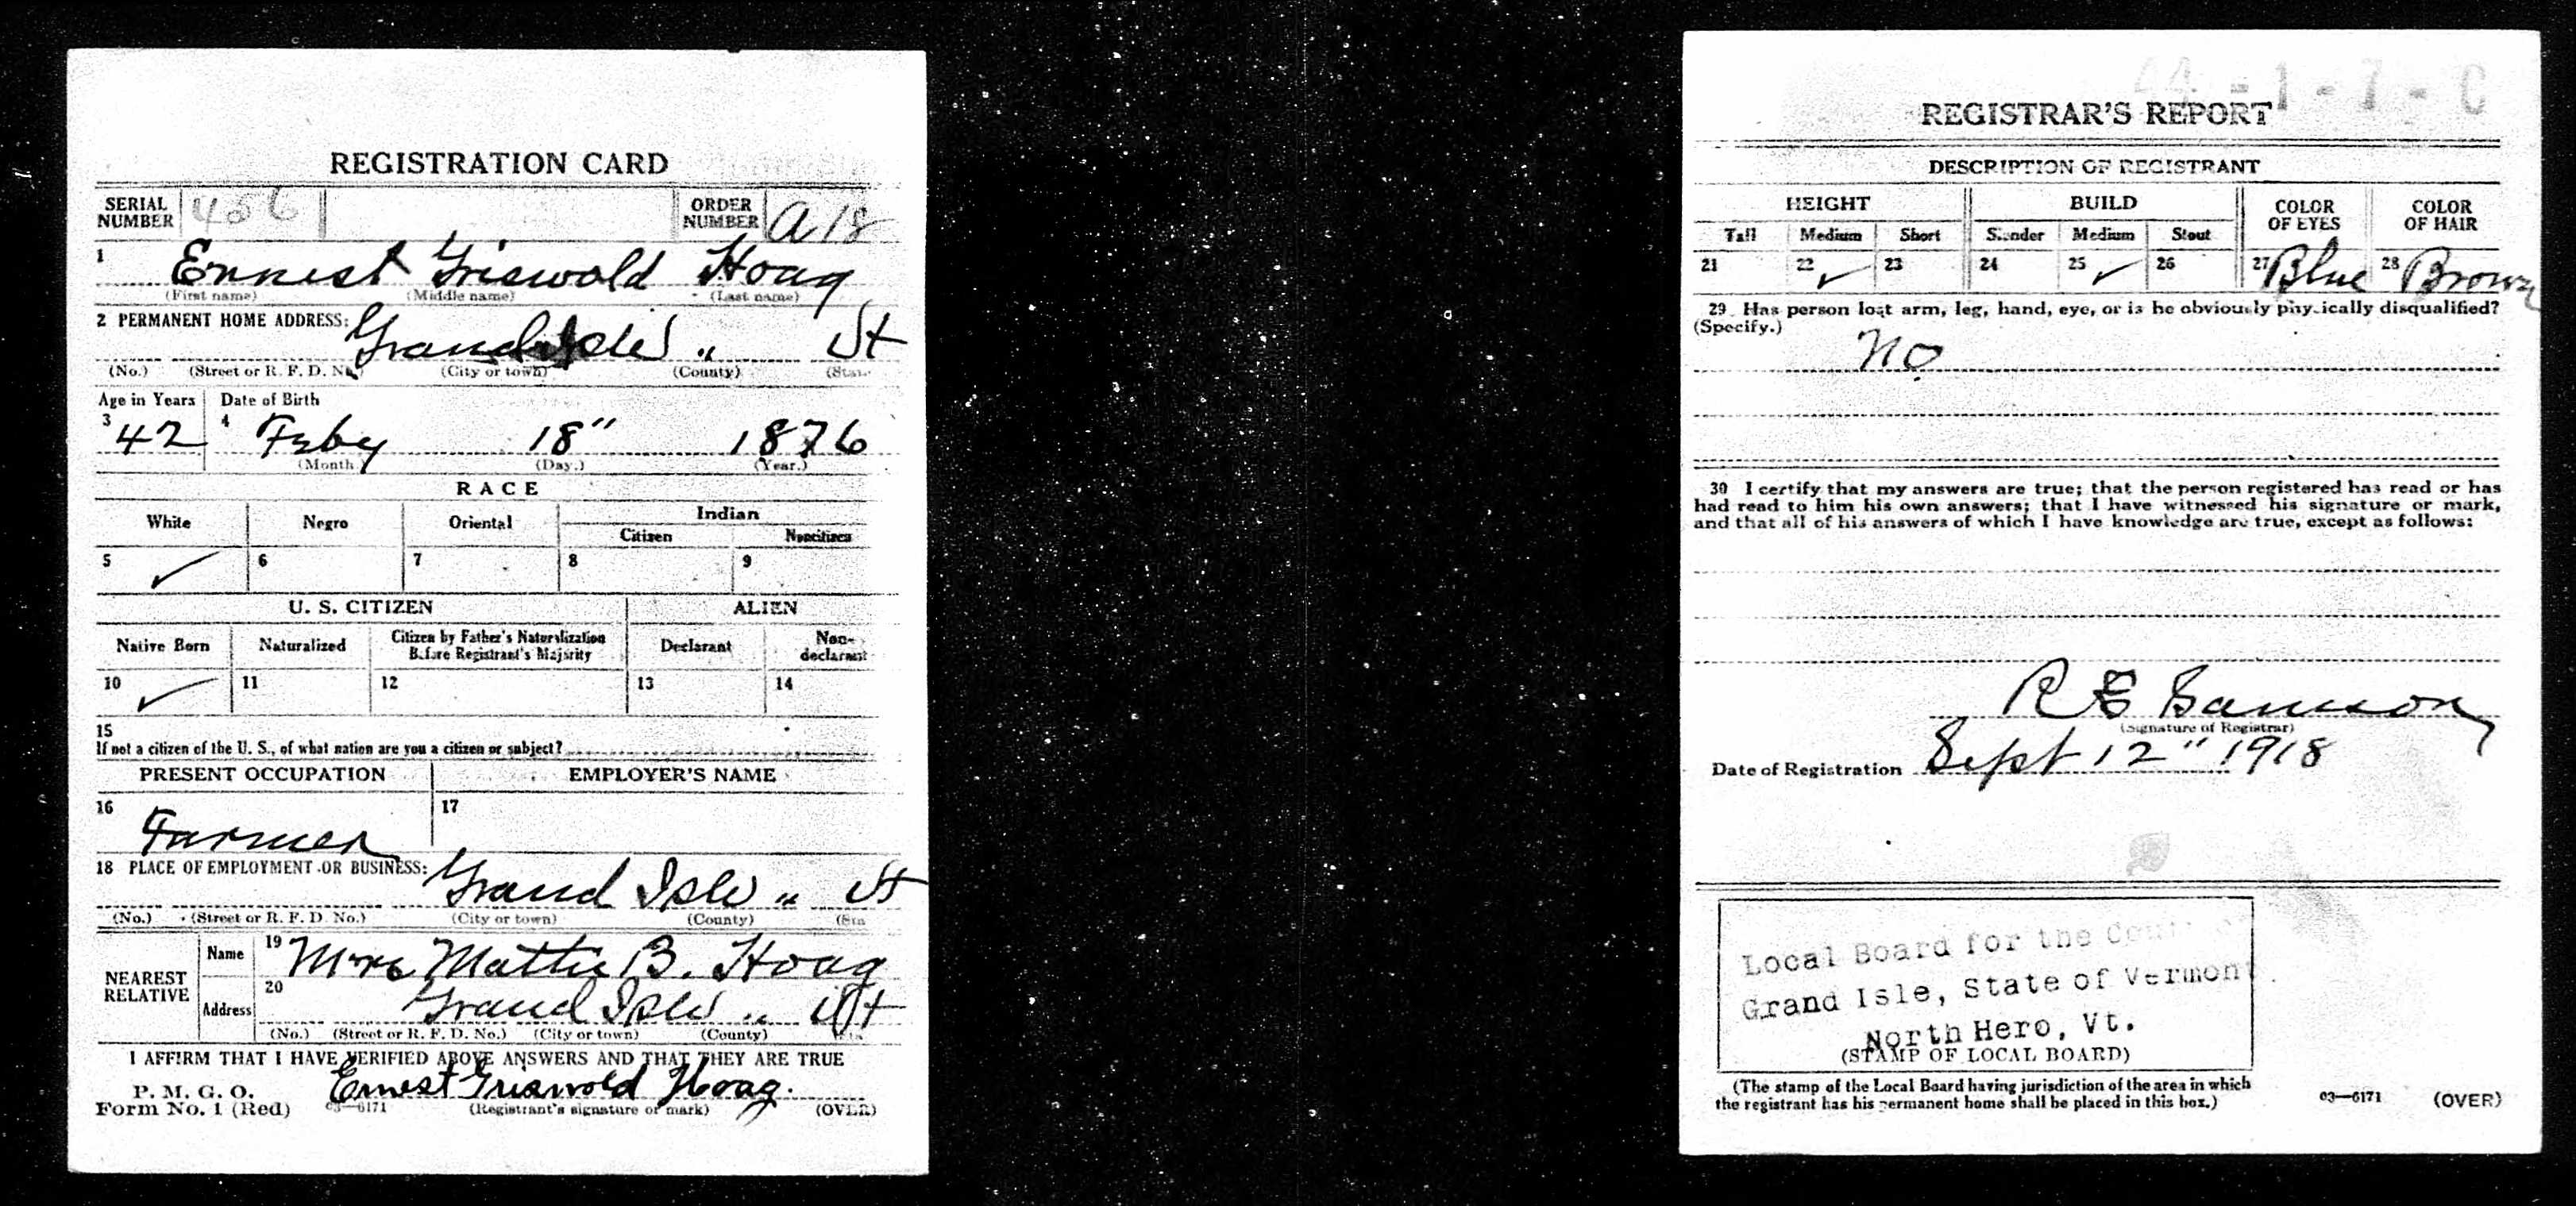 REGISTRATION CARD
SERIAL NUMBER 456 ORDER NUMBER A18
1 Ernest Griswold Hoag
(First name) (Middle name) (Last name)
2 PERMANENT HOME ADDRESS:
Grand Isle " Vt
(No.) (Street or R. F. D. No.) (City or town) (County) (State
Age in Years Date of Birth
3 42 4 Feby 18" 1876
(Month) (Day.) (Year.)
RACE
White Negro Oriental Indian
Citizen Noncitizen
5 ✓ 6 7 8 9
U. S. CITIZEN ALIEN
Native Born Naturalized Citizen by Father's Naturalization Before Registrant's Majority Declarant Non-declarant
10 ✓ 11 12 13 14
15
If not a citizen of the U. S., of what nation are you a citizen or subject?
PRESENT OCCUPATION EMPLOYER'S NAME
16 Farmer 17
18 PLACE OF EMPLOYMENT OR BUSINESS:
Grand Isle " Vt
(No.) (Street or R. F. D. No.) (City or town) (County) (Sta
NEAREST RELATIVE
Name 19 Mrs Mattie B. Hoag
Address 20 Grand Isle " Vt
(No.) (Street or R. F. D. No.) (City or town) (County)
I AFFIRM THAT I HAVE VERIFIED ABOVE ANSWERS AND THAT THEY ARE TRUE
P. M. G. O.
Form No. 1 (Red) 03—6171 Ernest Griswold Hoag.
(Registrant's signature or mark) (OVER)
44-1-7-C
REGISTRAR'S REPORT
DESCRIPTION OF REGISTRANT
HEIGHT BUILD COLOR OF EYES COLOR OF HAIR
Tall Medium Short Slender Medium Stout
21 22 ✓ 23 24 25 ✓ 26 27 Blue 28 Brown
29 Has person lost arm, leg, hand, eye, or is he obviously physically disqualified?
(Specify.) No
30 I certify that my answers are true; that the person registered has read or has
had read to him his own answers; that I have witnessed his signature or mark,
and that all of his answers of which I have knowledge are true, except as follows:
R E Samson
(Signature of Registrar)
Date of Registration Sept 12" 1918
Local Board for the
Grand Isle, State of Vermont
North Hero, Vt.
(STAMP OF LOCAL BOARD)
(The stamp of the Local Board having jurisdiction of the area in which
the registrant has his permanent home shall be placed in this box.)
03—6171 (OVER)